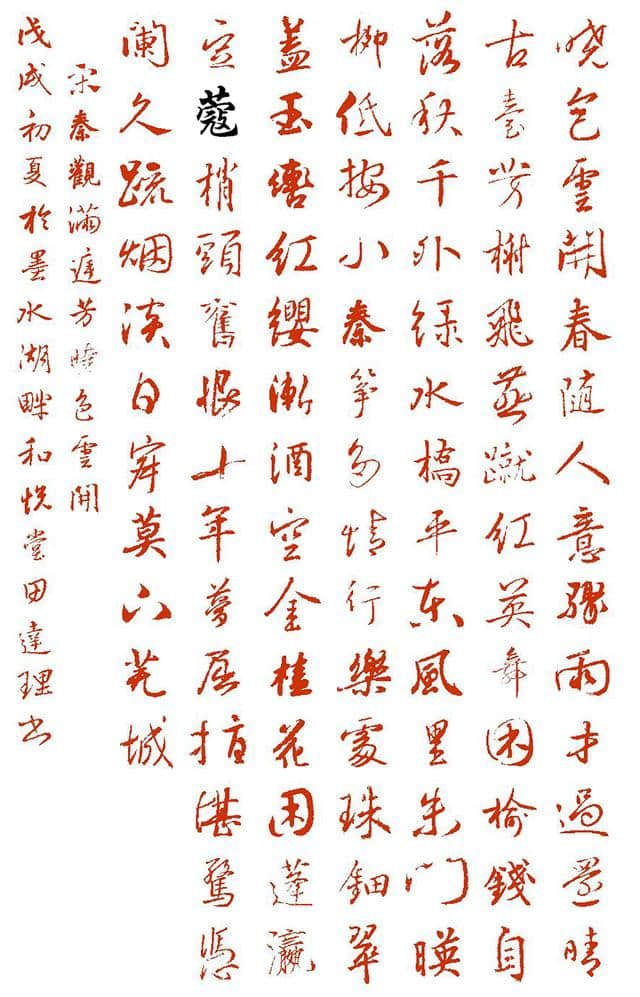 晓色雲開春随人意骤雨才過還晴
古臺芳榭飛燕蹴紅英舞困榆錢自
落秋千外绿水橋平东風里朱門映
柳低按小秦筝多情行樂處珠鈿翠
蓋玉轡紅纓漸酒空金榼花困蓬瀛
豆蔻梢頭舊恨十年夢屈指堪驚憑
阑久疏烟淡日寂寞下芜城
宋秦觀滿庭芳曉色雲開
戊戌初夏於墨水湖畔和悦堂田達理书